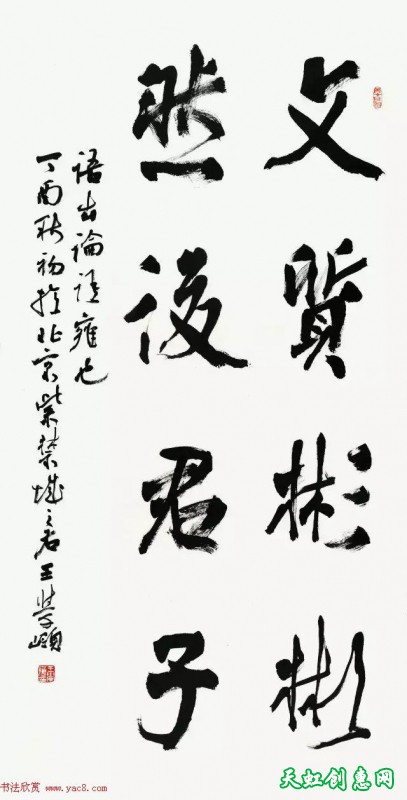 文質彬彬
然後君子
語出論語雍也
丁酉秋初於北京紫禁城之右王学岭
书法欣赏 www.yac8.com
天虹创意网